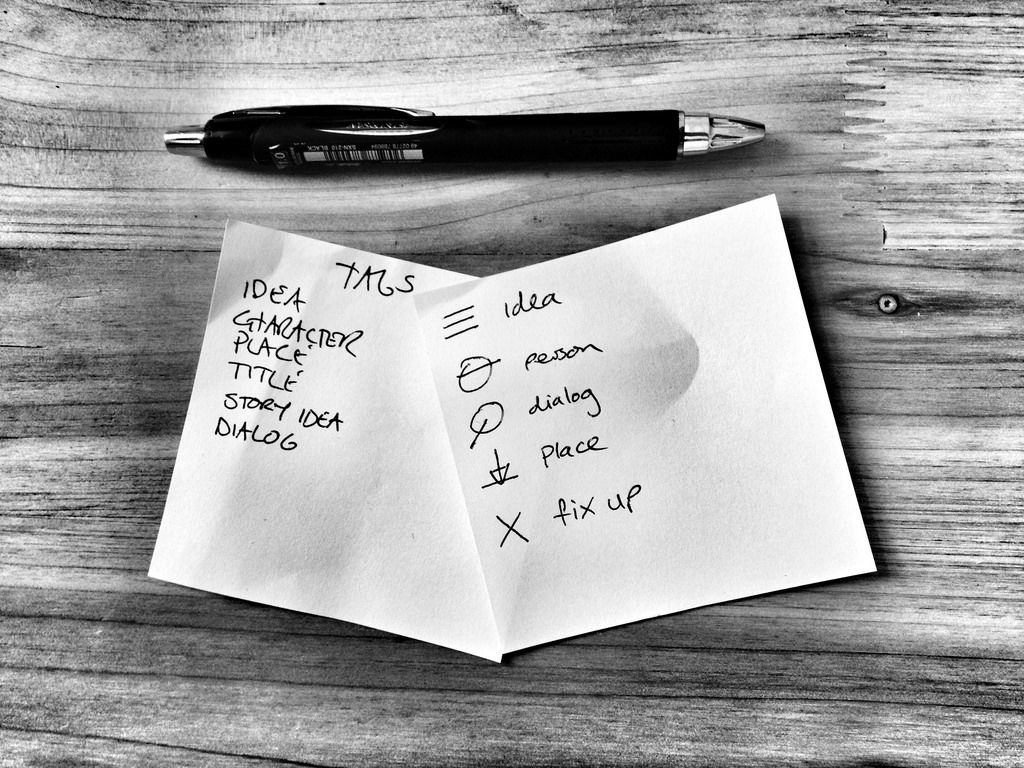 SXN-210 BLACK
TAGS
IDEA
CHARACTER
PLACE
TITLE
STORY IDEA
DIALOG
idea
person
dialog
place
fix up